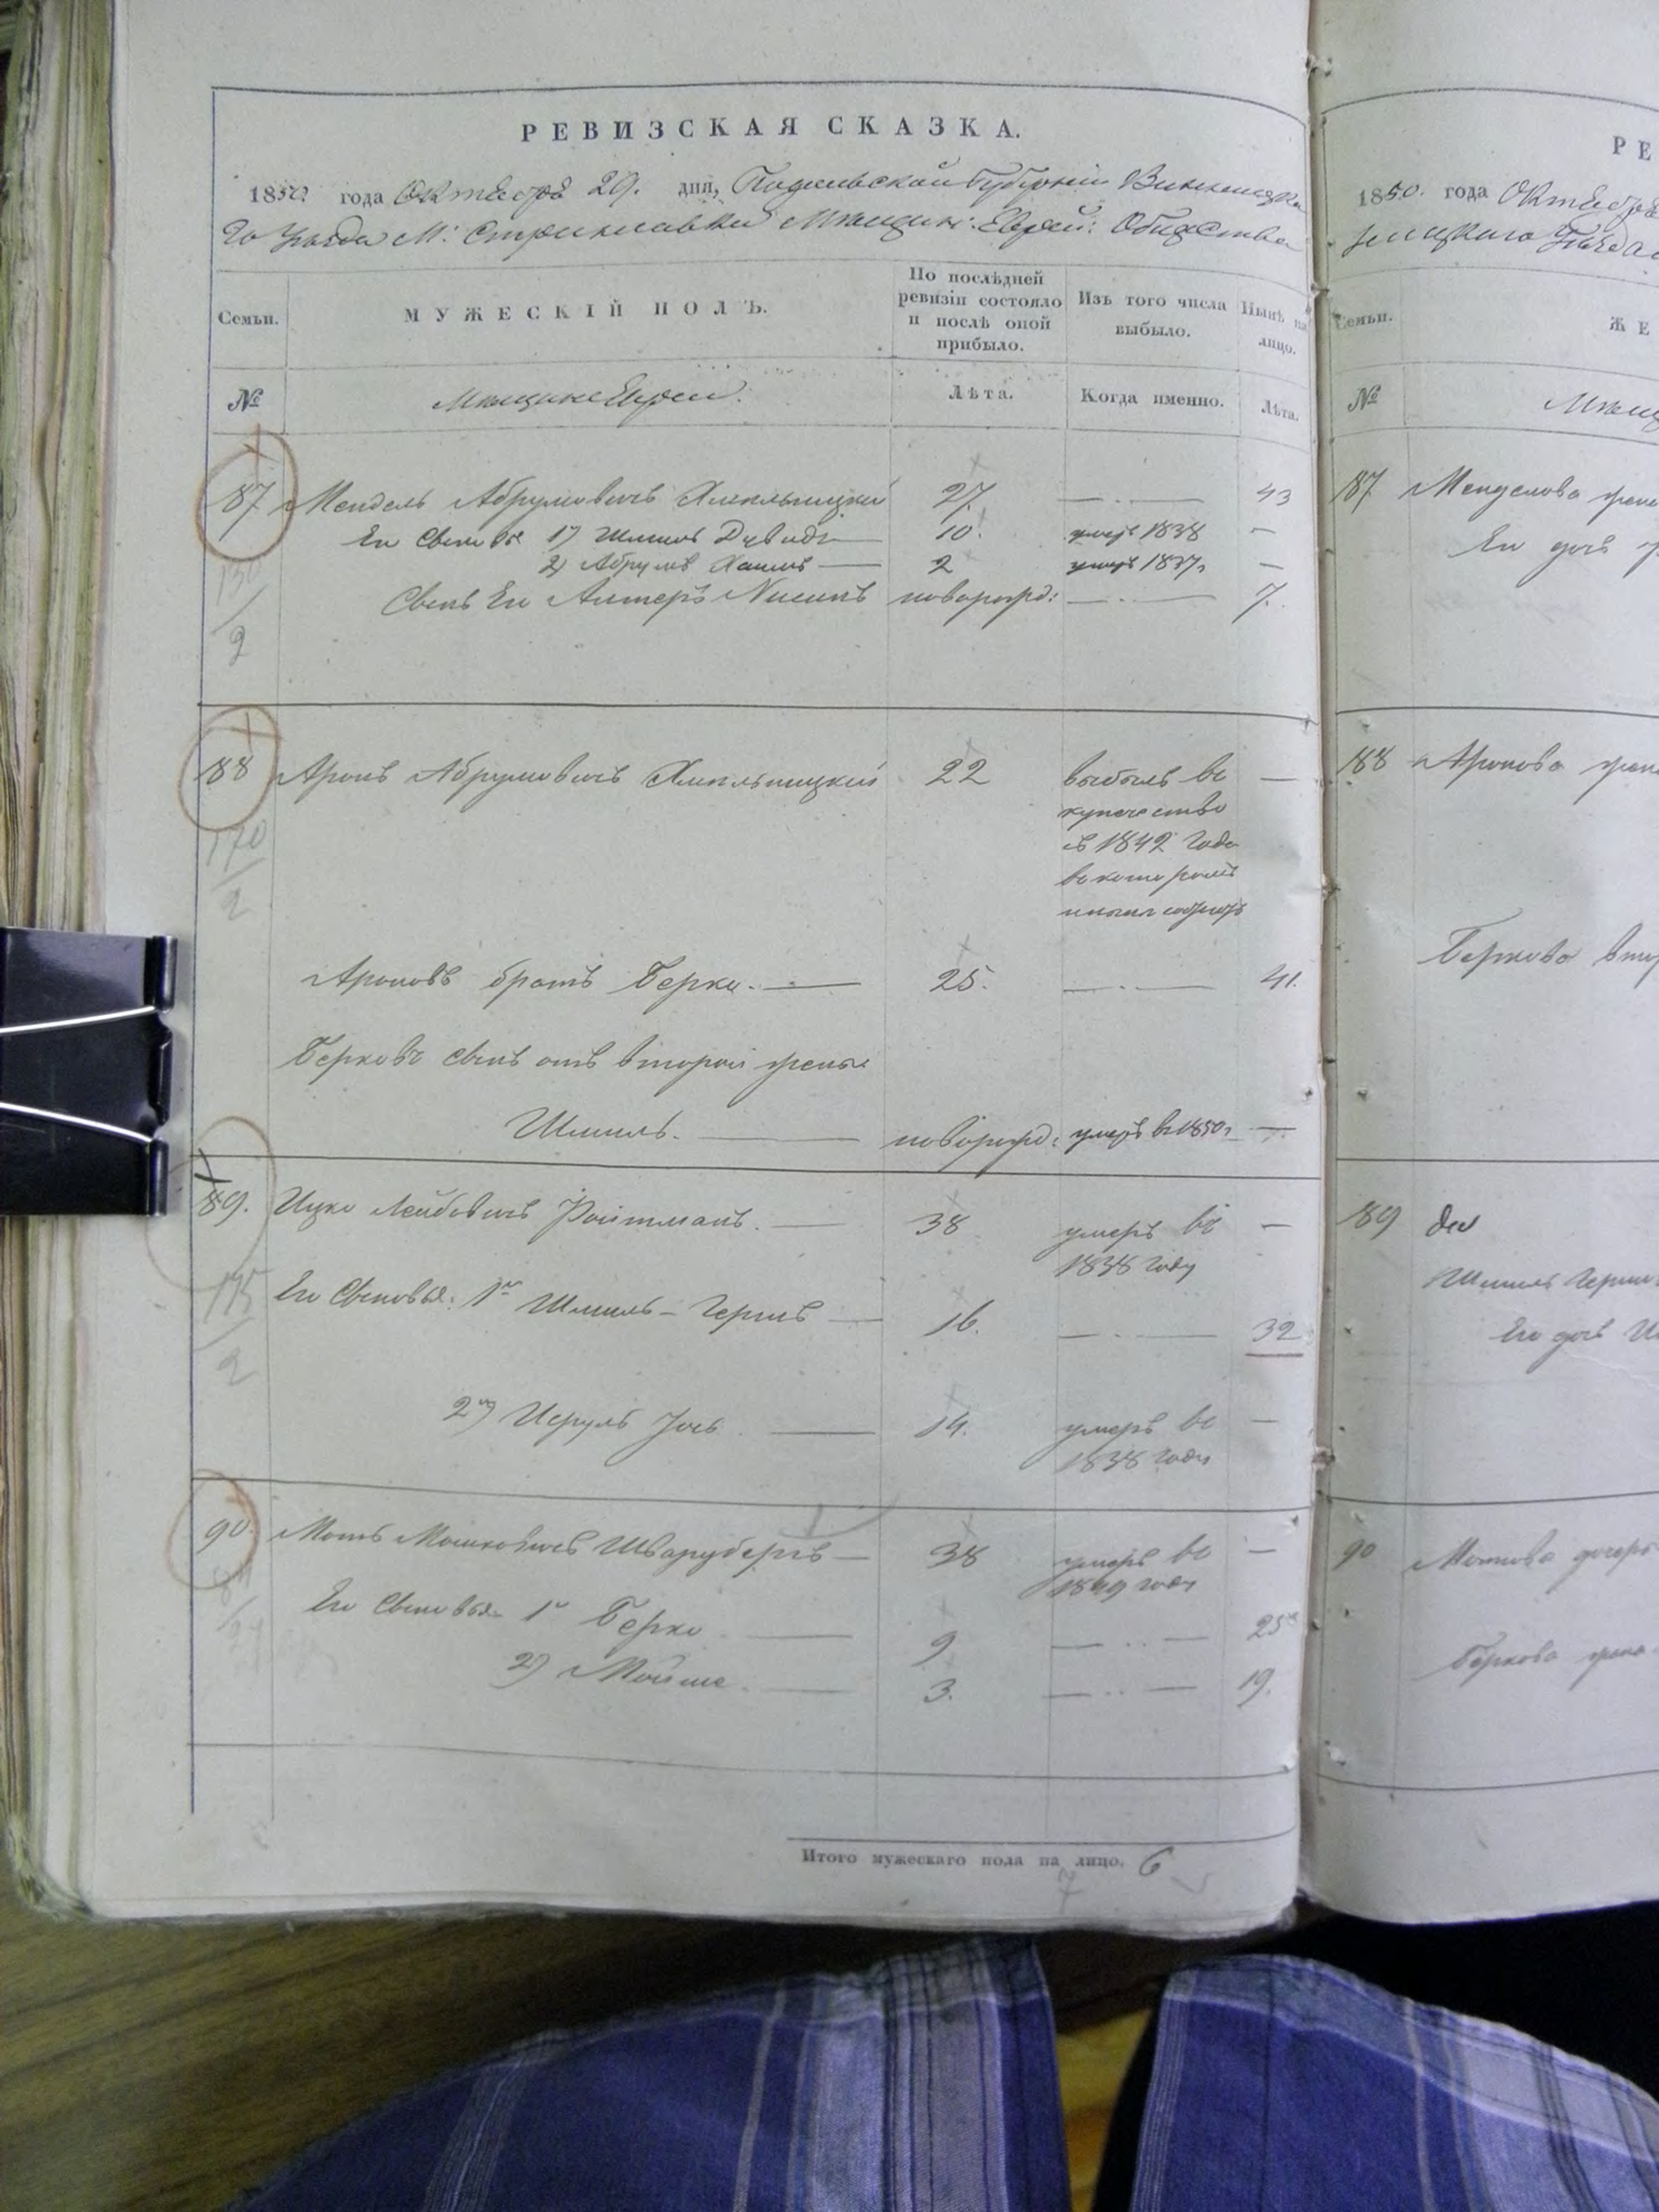 РЕВИЗСКАЯ СКАЗКА.
1850 года Октября 29. дня, Подольской Губерніи Винницка
го Уѣзда М: Стрижавки Мѣщан: Еврей: Общества
Семьи.
МУЖЕСКІЙ ПОЛЪ.
По послѣдней ревизіи состояло и послѣ оной прибыло.
Изъ того числа выбыло.
Нынѣ на лицо.
№
Мѣщане Евреи.
Лѣта.
Когда именно.
Лѣта.
87 Мендель Абрумовичъ Хмельницкій 27. — 43
Его Сыновья 1) Шмиль Дувидъ — 10. умеръ 1838 —
2) Абрумъ Хаимъ — 2 умеръ 1837г —
Сынъ Его Алтеръ Нисинъ новорожд: — 7.
130/2
88 Аронъ Абрумовичъ Хмельницкій 22 выбылъ въ —
купечество
съ 1842 года
въ которомъ
170/2
Ароновъ братъ Берко. — 25. — 41.
Берковъ Сынъ отъ второй жены
Шмиль. — новорожд: умеръ въ 1850г —
89. Ицко Лейбовичъ Ройтманъ. — 38 умеръ въ —
1838 году
Его Сыновья: 1й Шмиль-Гершъ — 16. — 32
175/2
2й) Исруль Іось — 14. умеръ въ —
1838 году
90. Моть Мошковичъ Шварцбергъ — 38 умеръ въ —
1849 году
Его Сыновья 1й Берко — 9 — 25
2й) Мойше. — 3. — 19.
Итого мужескаго пола на лицо. 6
7
РЕ
1850. года Октября
ницкаго Уѣзда
Семьи.
ЖЕ
№
Мѣщ
87 Менделова жена
Его дочь
88 Аронова жена
Беркова втор
89
Шмиль Герш
Его дочь
90 Мотьова дочерь
Беркова жена